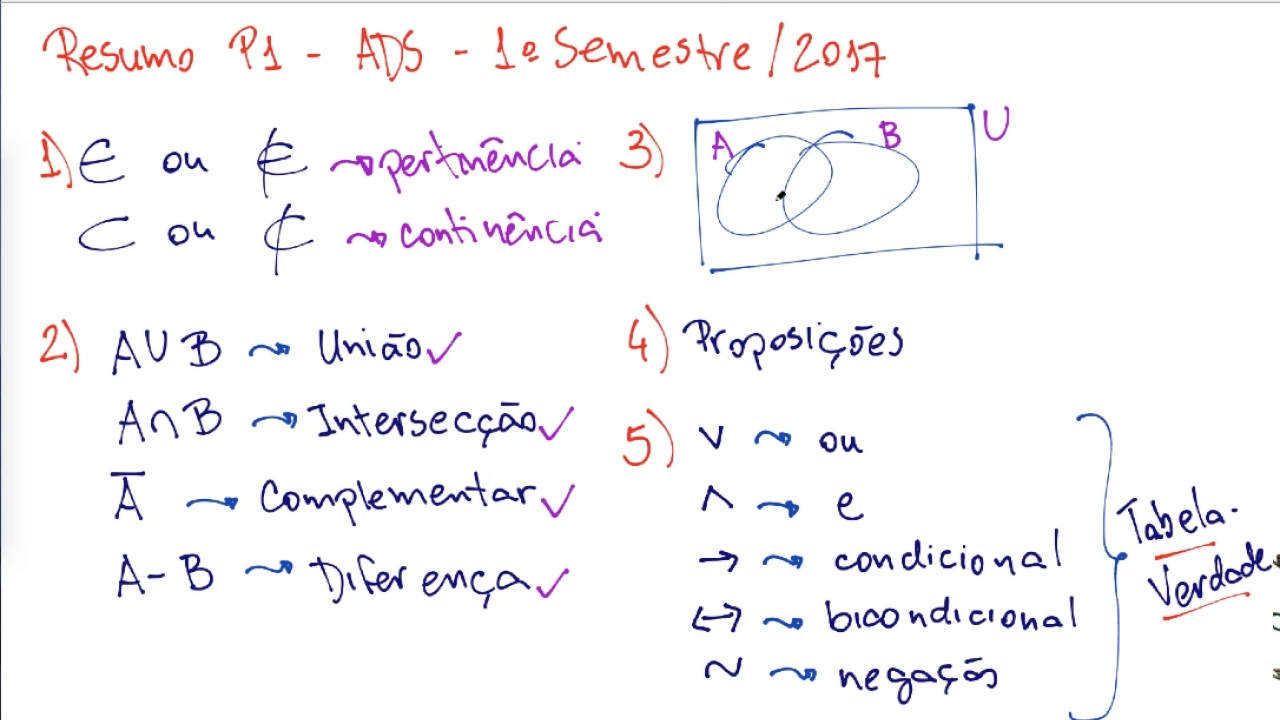 Resumo P1 - ADS - 1º Semestre/2017
1) ∈ ou ∉ → pertinência
⊂ ou ⊄ → continência
2) A∪B → União ✓
A∩B → Intersecção ✓
A̅ → Complementar ✓
A-B → Diferença ✓
3) A B U
4) Proposições
5) ∨ → ou
∧ → e
→ → condicional
↔ → bicondicional
~ → negação
Tabela-
Verdade